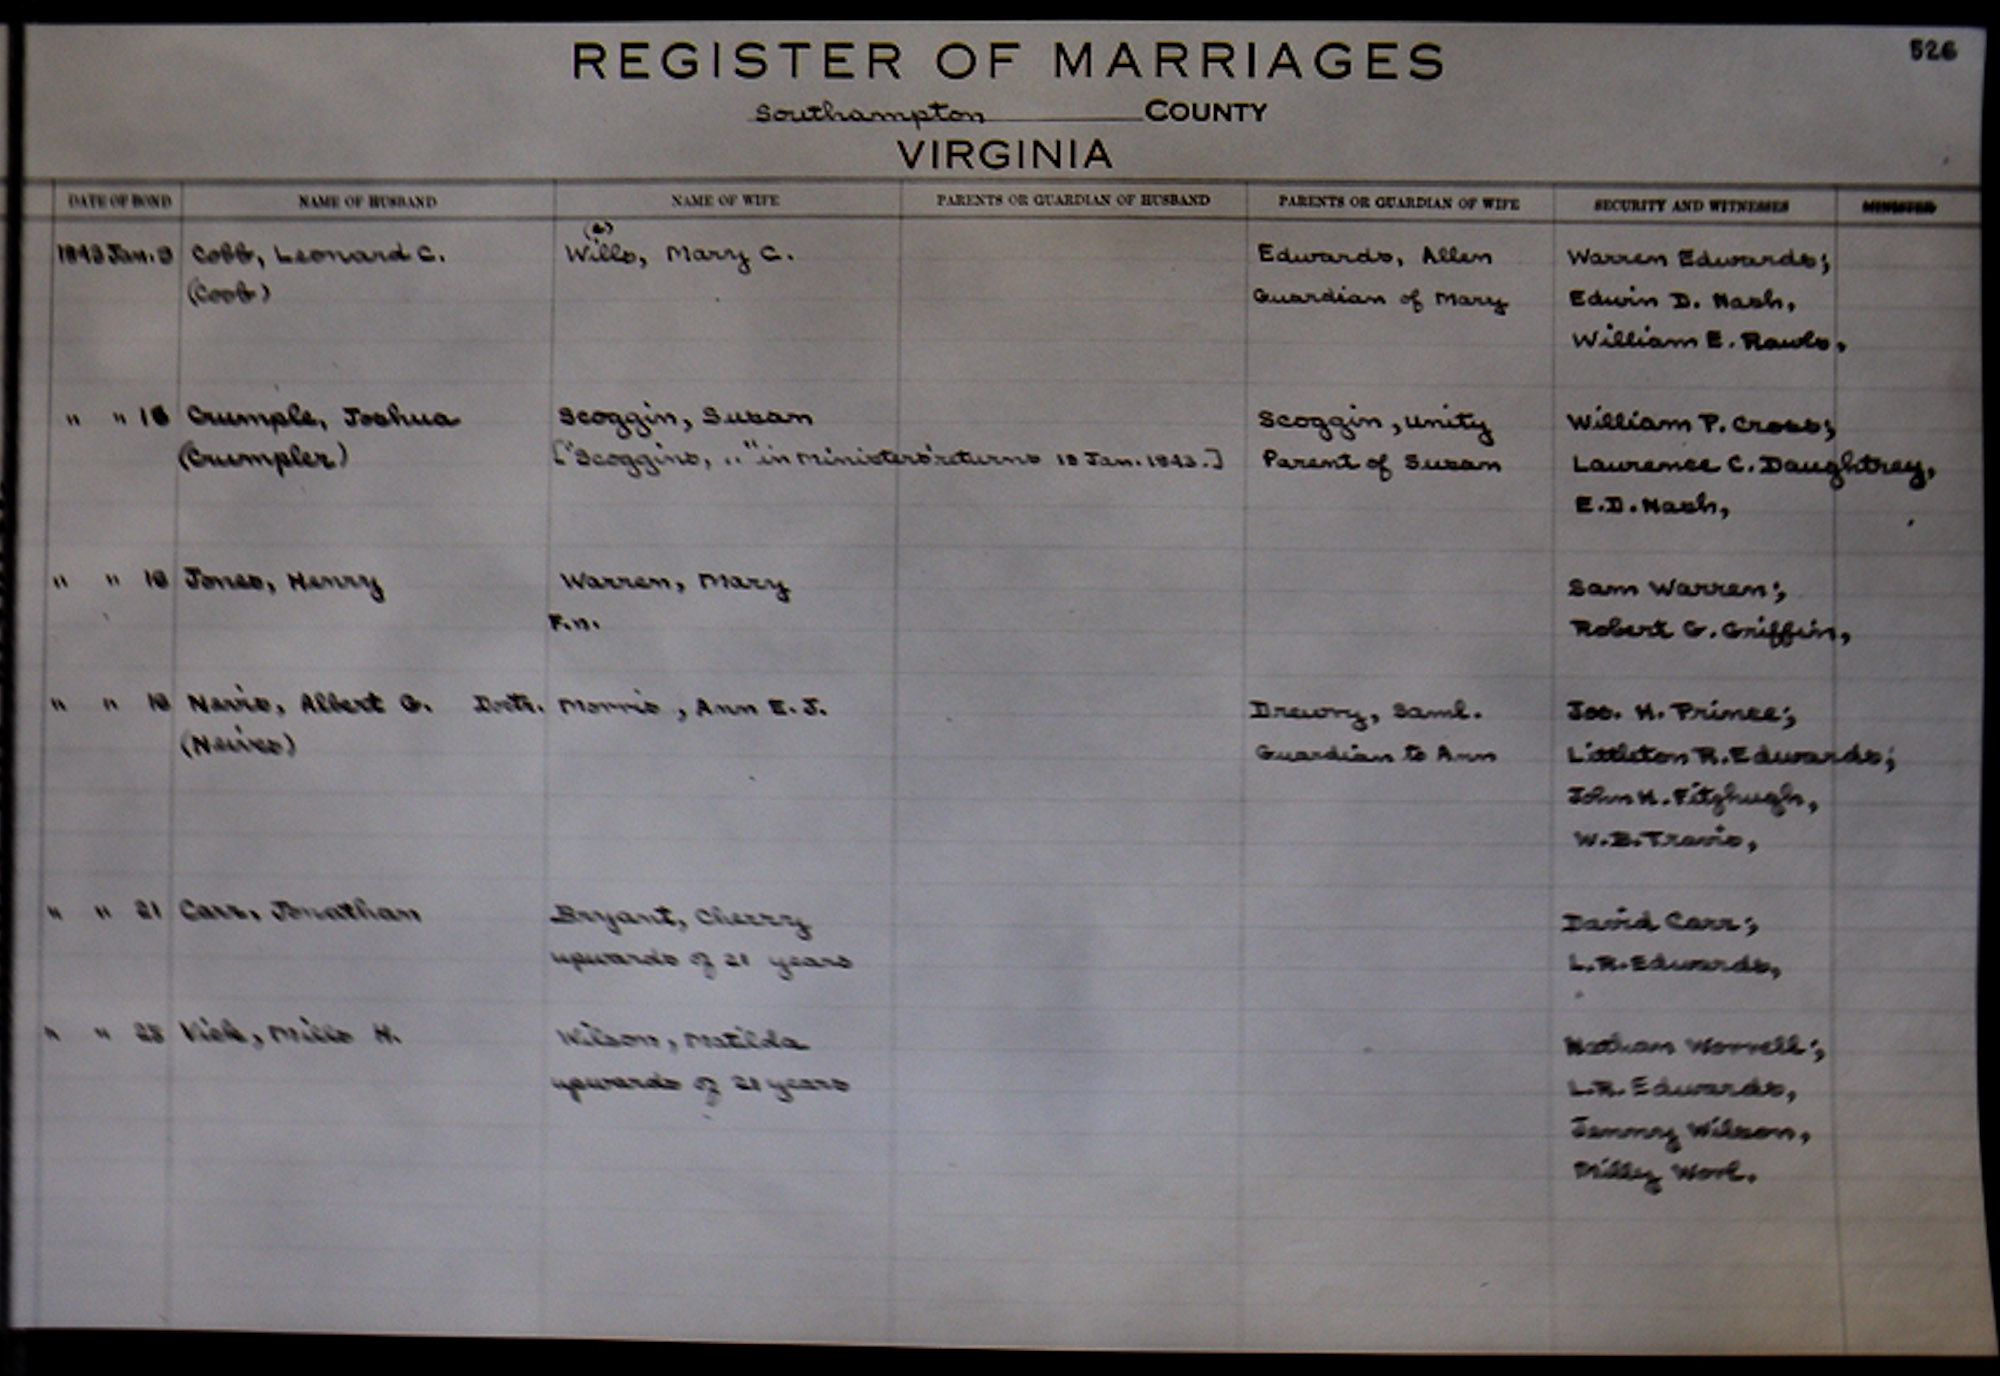 526
REGISTER OF MARRIAGES
Southampton COUNTY
VIRGINIA
DATE OF BOND NAME OF HUSBAND NAME OF WIFE PARENTS OR GUARDIAN OF HUSBAND PARENTS OR GUARDIAN OF WIFE SECURITY AND WITNESSES MINISTER
1843 Jan. 9 Cobb, Leonard C. Wills, Mary C. Edwards, Allen Warren Edwards;
(Coob) Guardian of Mary Edwin D. Nash,
William E. Rawls,
" " 16 Crumple, Joshua Scoggin, Susan Scoggin, Unity William P. Cross;
(Crumpler) ["Scoggins, .." in Ministers' returns 18 Jan. 1843.] Parent of Susan Laurence C. Daughtrey,
E.D. Nash,
" " 16 Jones, Henry Warren, Mary Sam Warren;
F.n. Robert G. Griffin,
" " 16 Nevis, Albert G. Doctr. Morris, Ann E. J. Drewry, Saml. Jos. H. Prince;
(Neives) Guardian to Ann Littleton R. Edwards;
John H. Fitzhugh,
W.B. Travis,
" " 21 Carr, Jonathan Bryant, Cherry David Carr;
upwards of 21 years L.R. Edwards,
" " 23 Vick, Mills H. Wilson, Matilda Nathan Worrell;
upwards of 21 years L.R. Edwards,
Wilson,
Milley